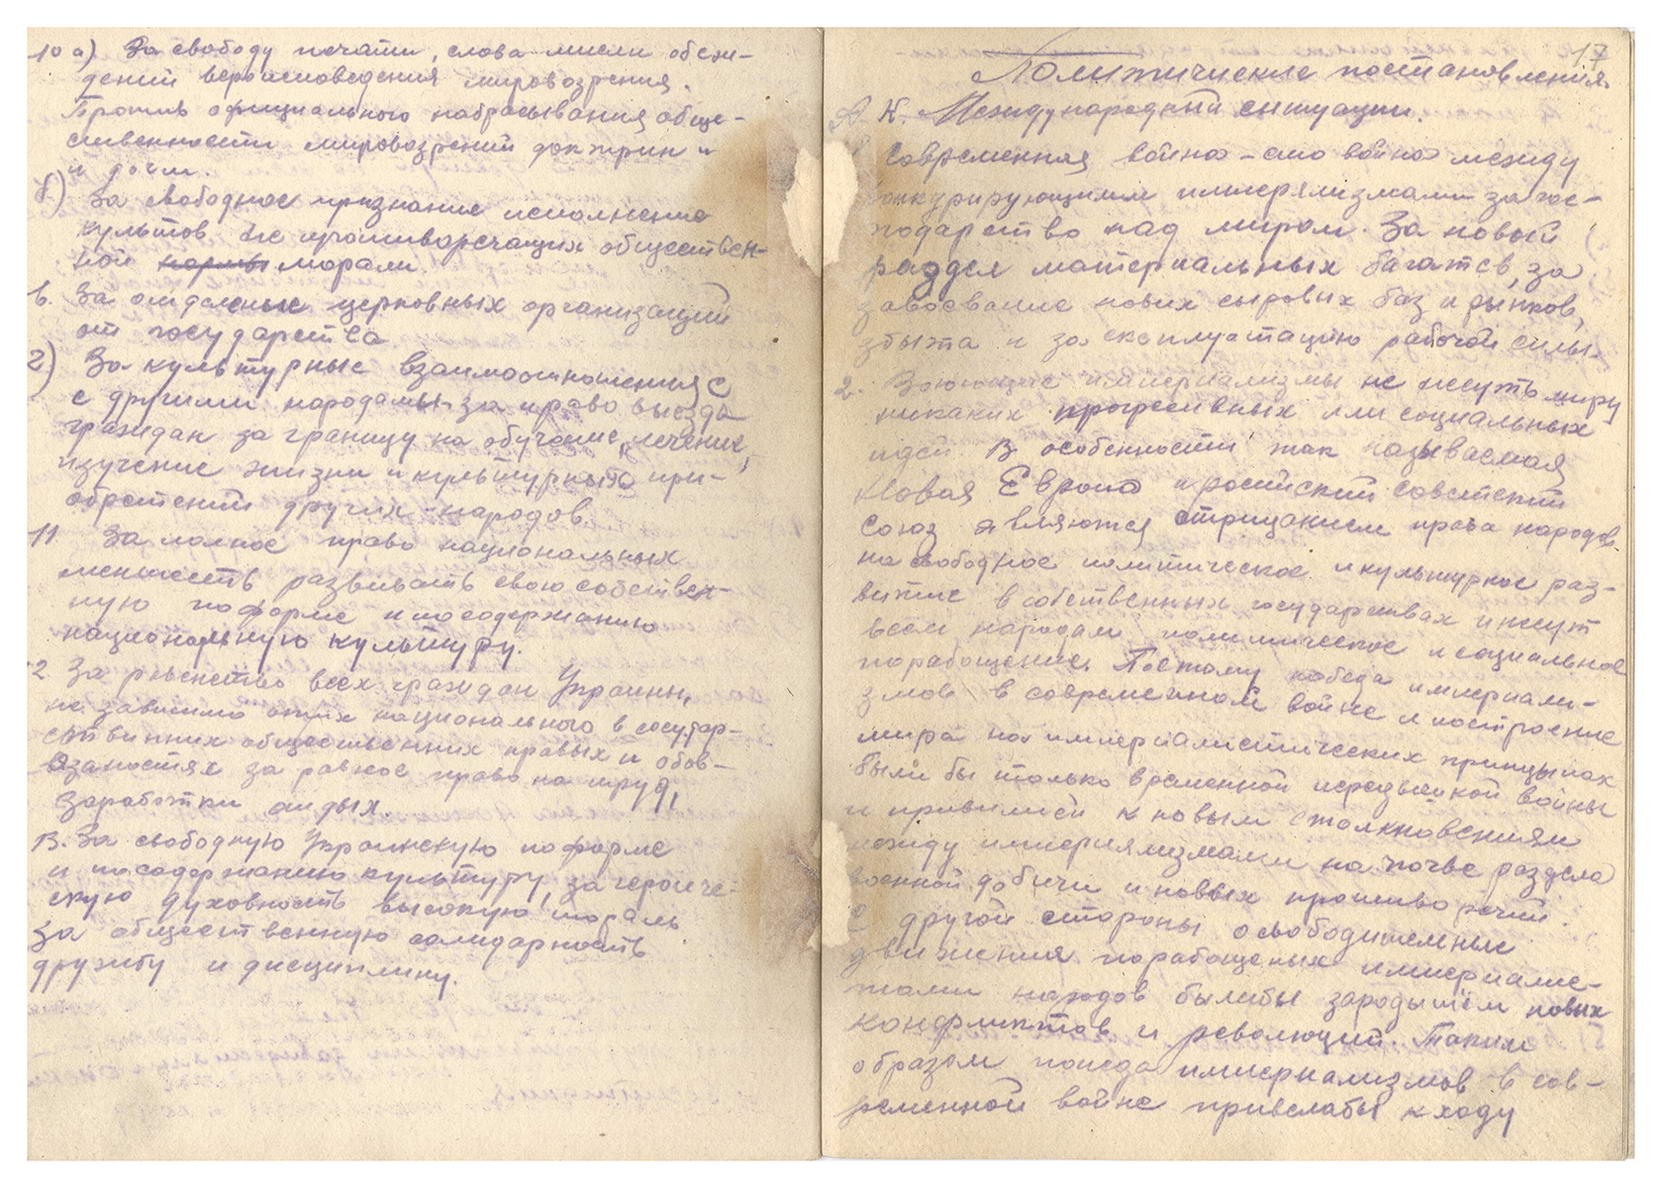 10 а) За свободу печати, слова мысли обеж-
дений вероисповедения мировозрения.
Против официального набрасывания обще-
ственности мировозрений доктрин и
и догм.
б) За свободное признание исполнение
культов не противоречащих обществен-
ной нормы морали.
в. За отделеные церковных организаций
от государства
2) За культурные взаимоотношения с
с другими народамы за право выезда
граждан за границу на обучение, лечение,
изучение жизни и культурных при-
обретений других народов.
11 За полное право национальных
меншеств развивать свою собствен-
ную по форме и по содержанию
национальную культуру.
2 За рвенство всех граждан Украины,
не зависимо от их национального в государ-
ственних общественних правых и обов-
язаностях за равное право на труд,
заработки отдых.
В. За свободную Украинскую по форме
и по содержанию культуру, за героиче-
скую духовность высокую мораль
За общественную солидарность
дружбу и дисциплину.
17
Политичиские постановления
А. К. Международный ситуации.
Современная война - ето война между
конкурирующими империялизмами за гос-
подарство над миром. За новый
раздел материальных багатсв, за
завоевание новых сыровых баз и рынков,
збыта и за експлуатацию рабочой силы.
2. Воюющие империализмы не несуть миру
никаких прогресивных или социальных
идей. В особенности так называемая
Новая Европа и росийский советский
союз являются отрицанием права народов
на свободное политическое и культурное раз-
витие в собственных государствах и несут
всем народам политическое и социальное
порабощение. Поетому победа империали-
змов в современной войне и построение
мира на империалистических принцыпах
были бы только временной передышкой войны
и привилибы к новым столкновениям
между империялизмами на почве раздела
военной добичи и новых противоречий.
С другой стороны освободительные
движения порабощеных империалис-
тами народов былибы зародышём новых
конфликтов и революций. Таким
образом победа империализмов в сов-
ременной войне привелабы к ходу